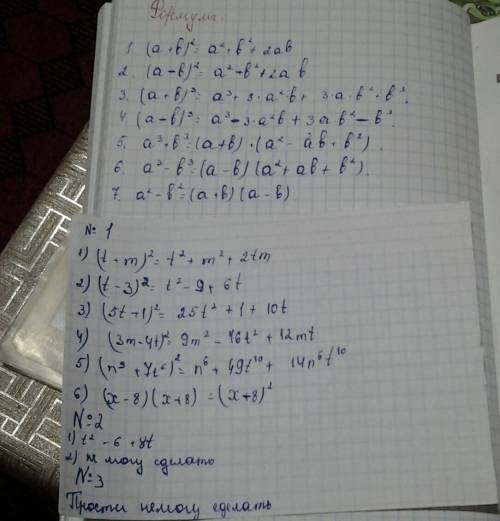 Формулы.
1. (a+b)² = a² + b² + 2ab
2. (a-b)² = a² - b² + 2ab
3. (a+b)³ = a³ + 3·a²b + 3a·b² + b³.
4. (a-b)³ = a³ - 3·a²b + 3ab² - b³.
5. a³+b³ = (a+b)·(a² - ab + b²).
6. a³-b³ = (a-b)(a² + ab + b²).
7. a²-b² = (a+b)(a-b)
№ 1
1) (t+m)² = t² + m² + 2tm
2) (t-3)² = t² - 9 + 6t
3) (5t+1)² = 25t² + 1 + 10t
4) (3m-4t)² = 9m² - 16t² + 12mt
5) (n³ + 7t⁵)² = n⁶ + 49t¹⁰ + 14n⁶t¹⁰
6) (x-8)(x+8) = (x+8)²
№2
1) t² - 6 + 8t
2) не могу сделать
№3
Прости немогу сделать